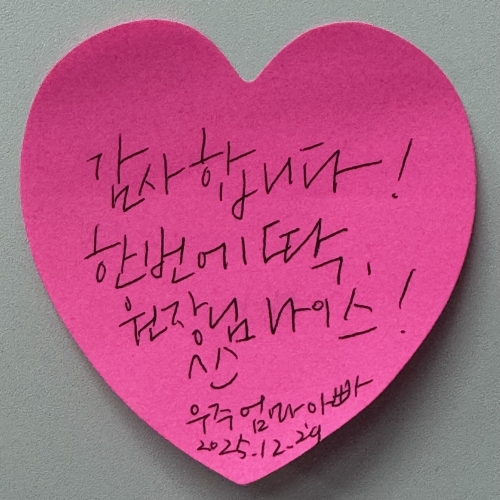 감사합니다!
한번에 딱,
원장님 나이스!
우주 엄마아빠
2025.12.29